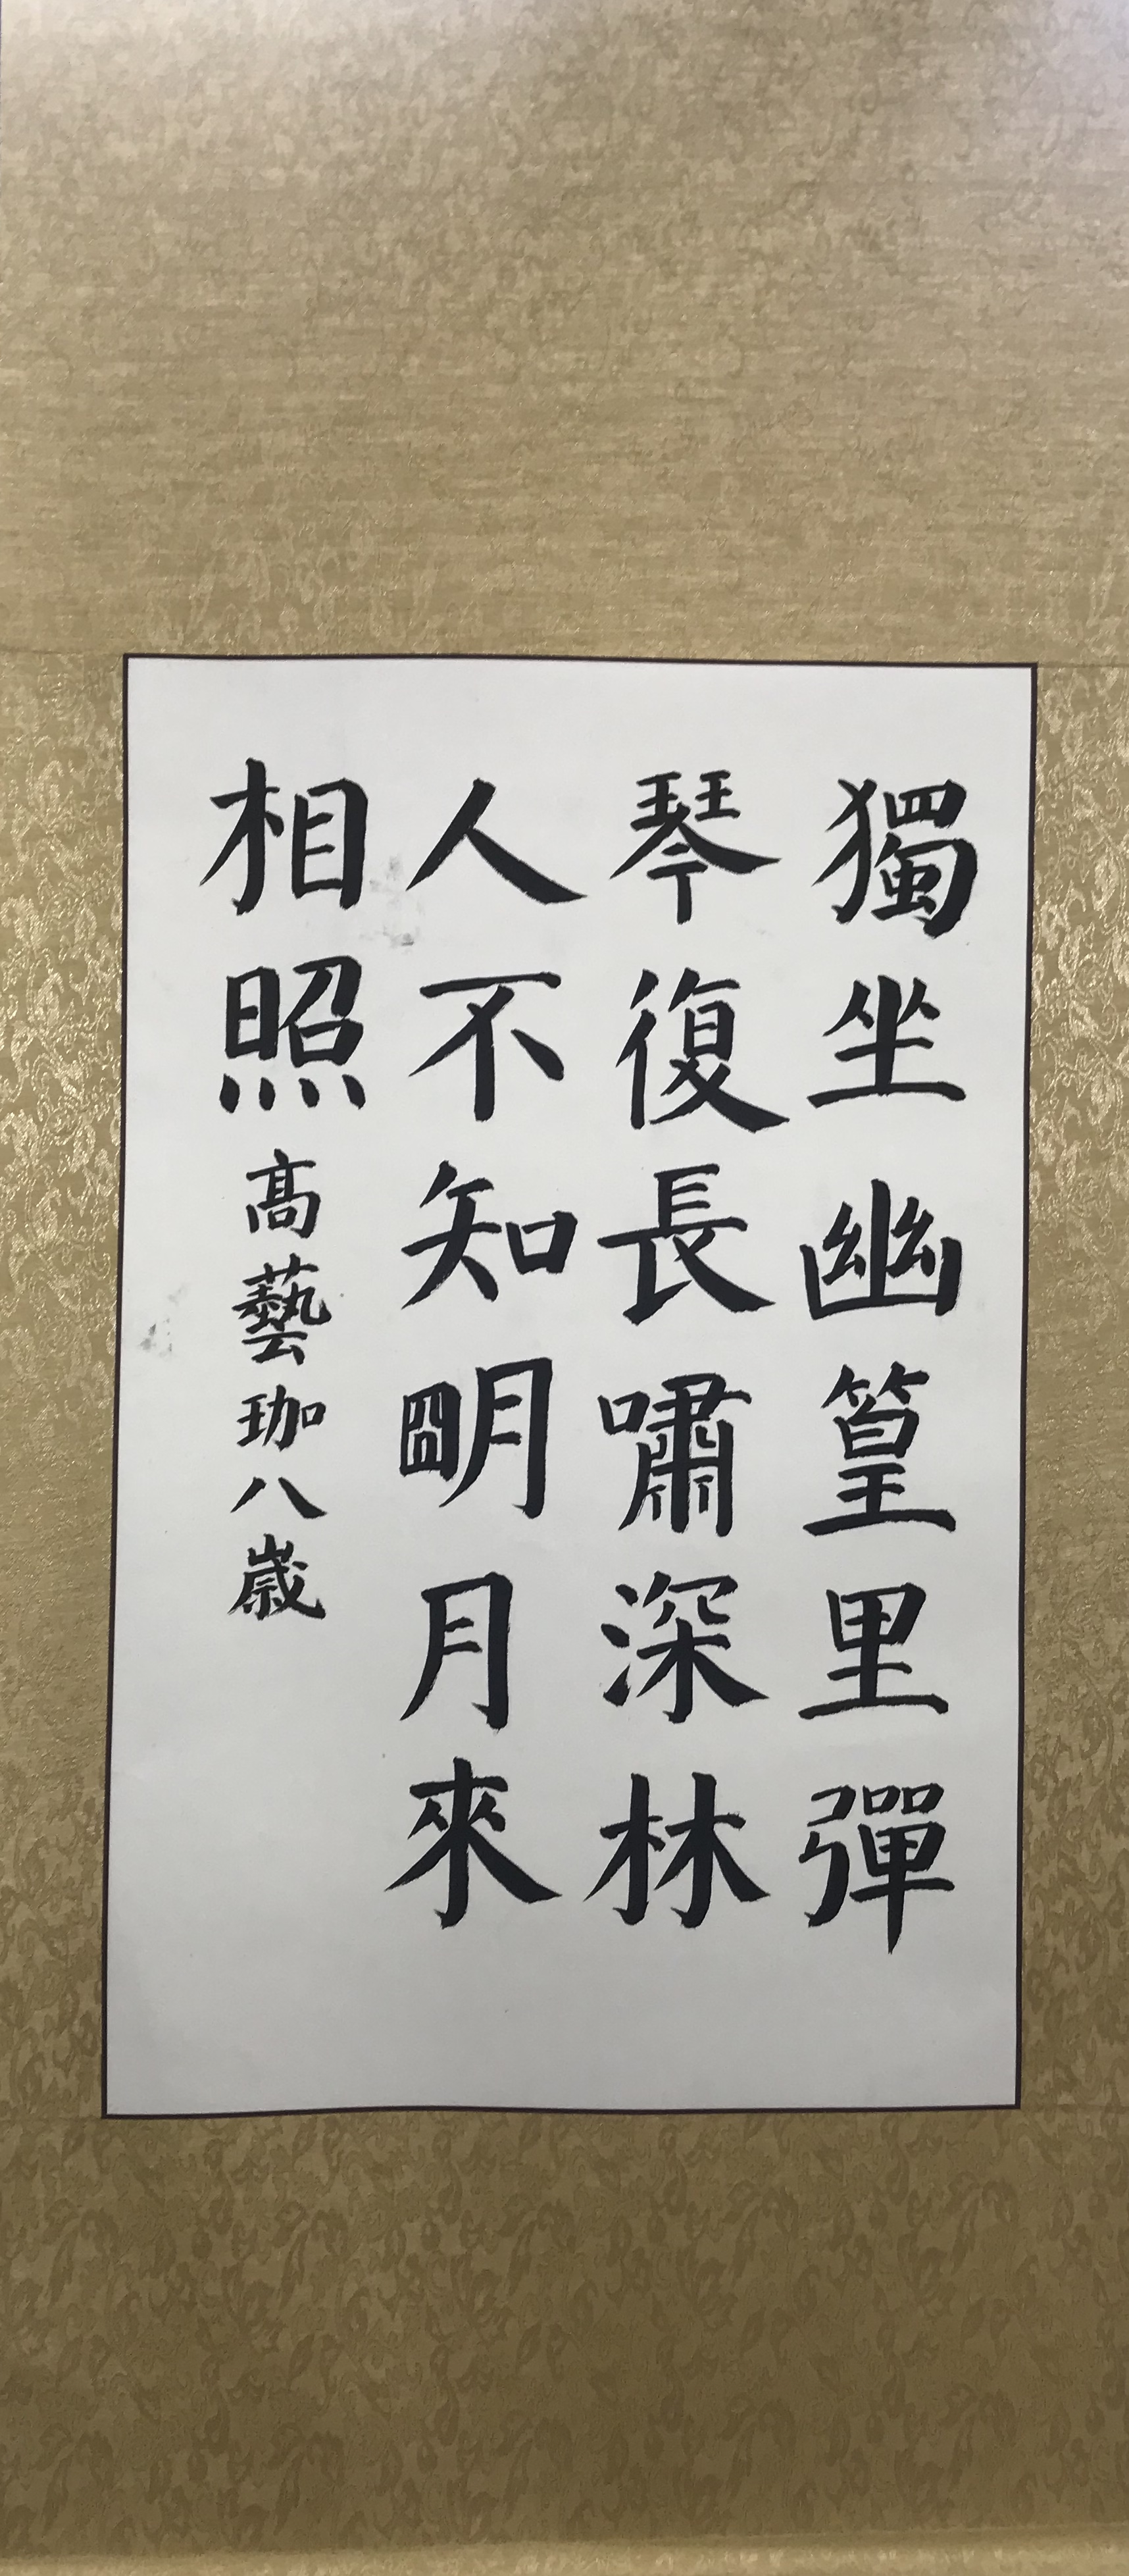 獨坐幽篁里彈
琴復長嘯深林
人不知朙月來
相照高藝珈八歲